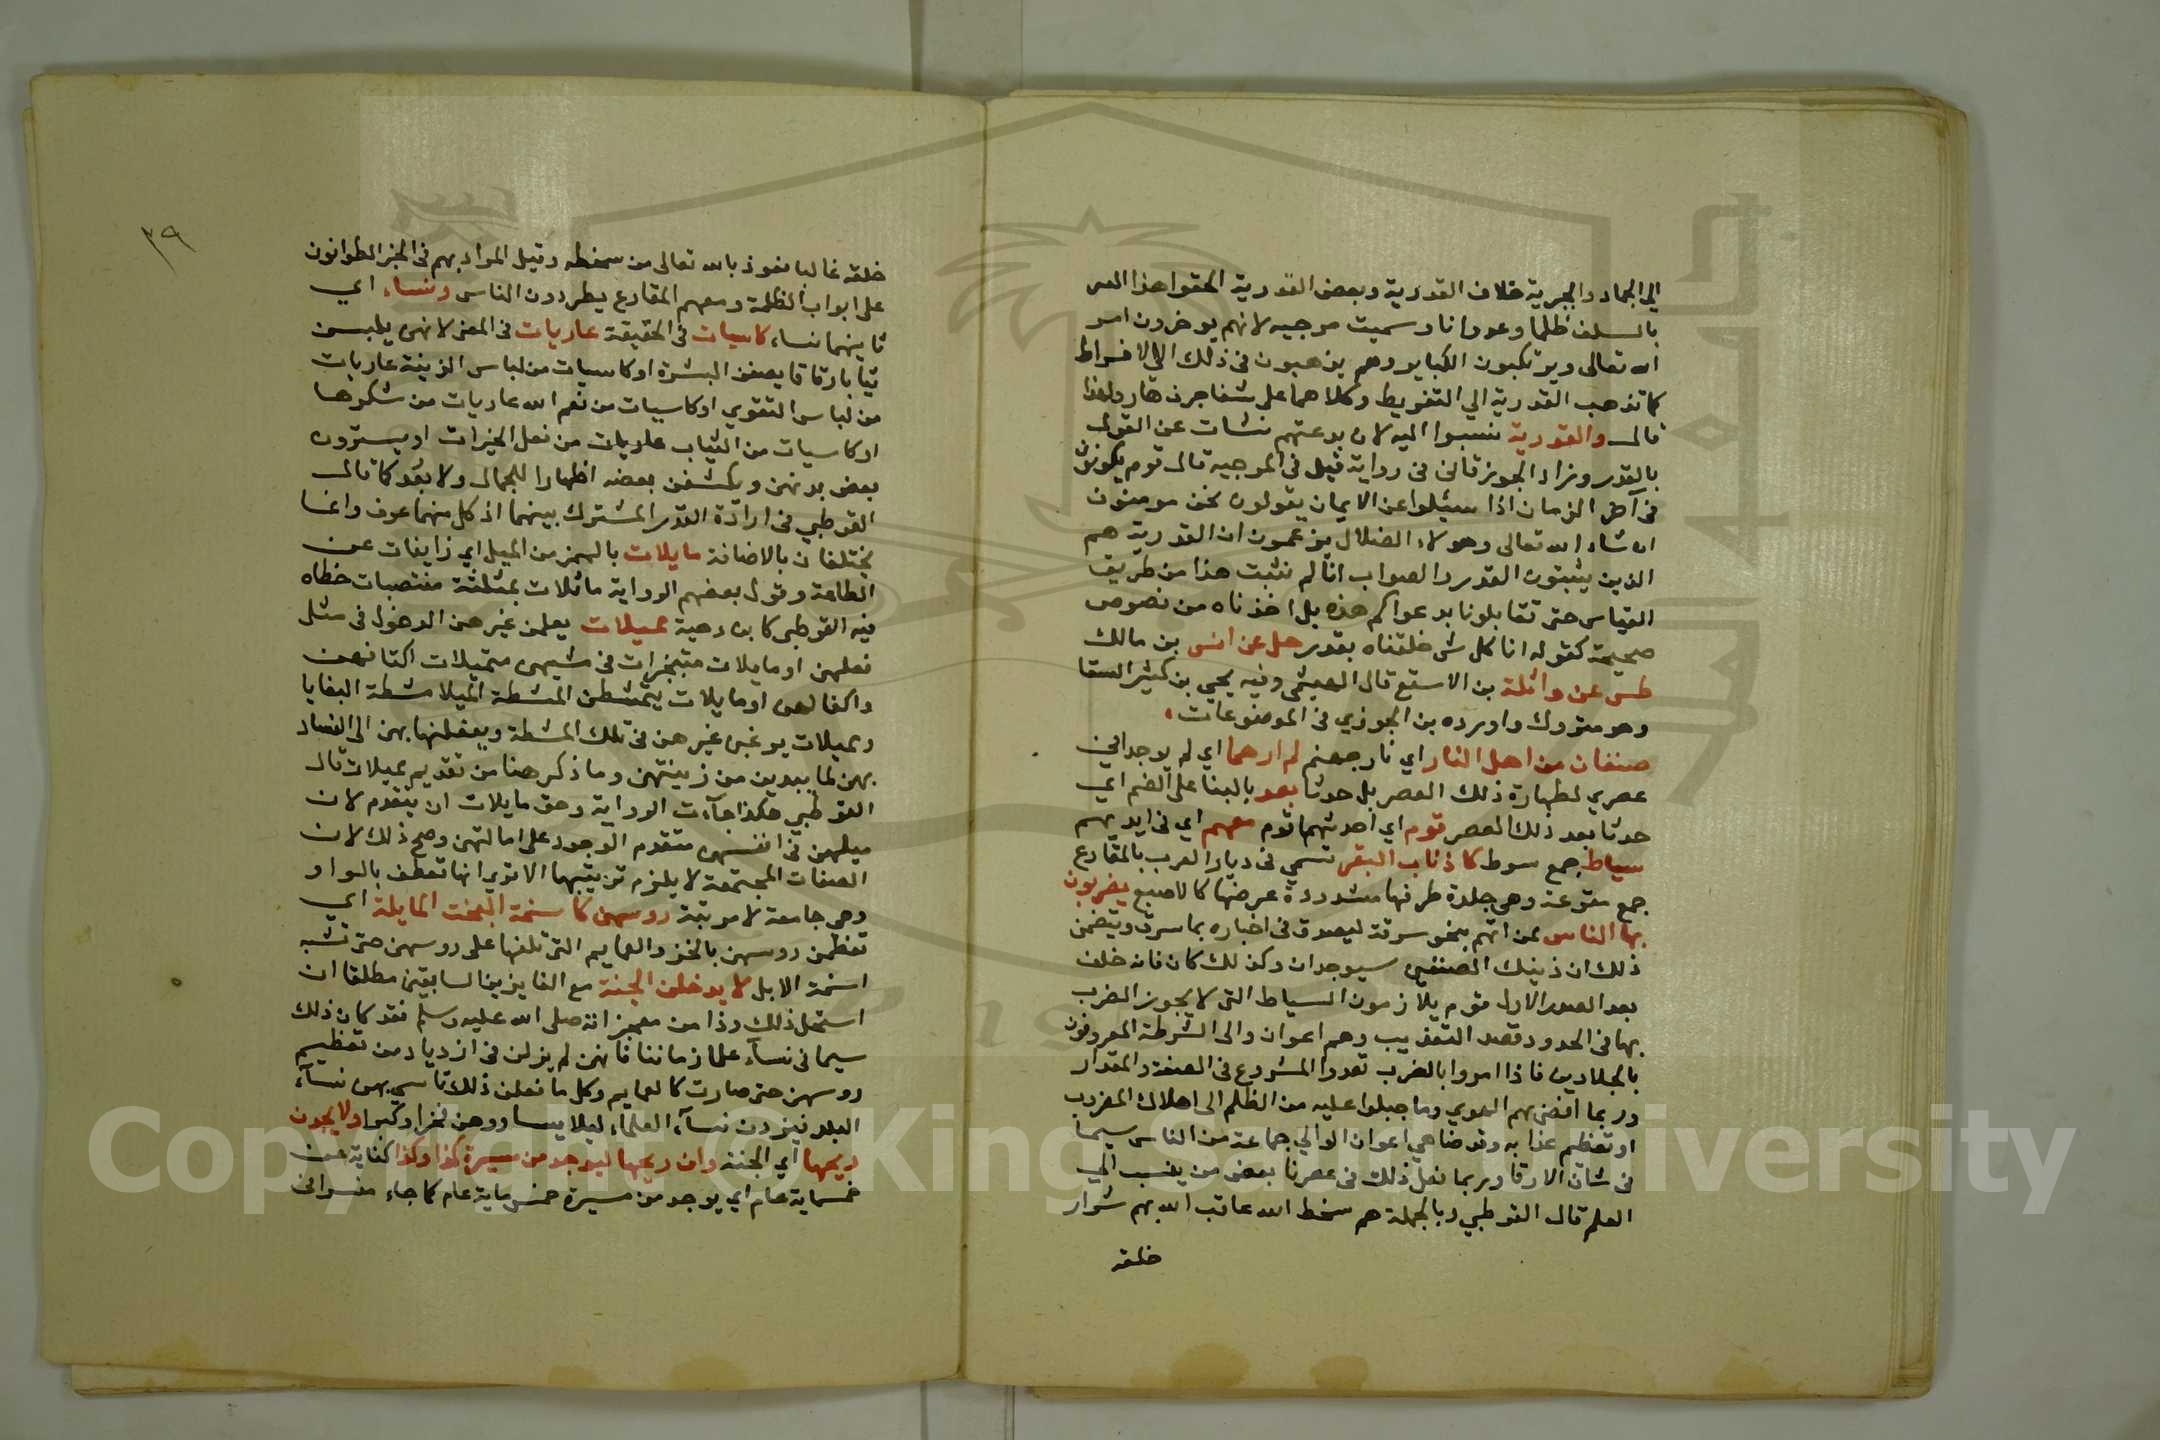 الي الجماد والجبرية خلاف القدرية وبعض القدرية الحقوا هذا
بالسلف ظلما وعدوانا وسميت مرجيه لانهم يوخرون امر
الله تعالى ويرتكبون الكباير وهم يذهبون في ذلك الي الافراط
كما تذهب القدرية الي التفريط وكلاهما على شفا جرف هار ولهذا
قال والقدرية نسبوا اليه لان بدعتهم نشات عن القول
بالقدر وزاد الجوزقاني في رواية قيل في المرجيه قال قوم يكونون
في آخر الزمان اذا سيئلوا عن الايمان يقولون نحن مومنون
ان شاء الله تعالى وهولاء الضلال يزعمون ان القدرية هم
الذين يثبتون القدر والصواب انا لم نثبت هذا من طريق
القياس حتى تقابلونا بدعواكم هذه بل اخذناه من نصوص
صحيحة كقوله انا كل شي خلقناه بقدر حل عن انس بن مالك
طس عن واثلة بن الاسقع قال الهيثمي وفيه يحيي بن كثير السقا
وهو متروك واورده بن الجوزي في الموضوعات
صنفان من اهل النار اي نار جهنم لم ارهما اي لم يوجدا في
عصري لطهارة ذلك العصر بل حدثا بعد بالبنا على الضم اي
حدثا بعد ذلك العصر قوم اي احدثهما قوم معهم اي في ايديهم
سياط جمع سوط كاذناب البقر تسمي في ديار العرب بالمقارع
جمع مقرعة وهي جلدة طرفها مشدودة عرضها كالاصبع يضربون
بها الناس ممن اتهم بنحو سرقة ليصدق في اخباره بما سرق ويتضمن
ذلك ان ذينك الصنفين سيوجدان وكذلك كان فانه خلف
بعد الصدر الاول قوم يلازمون السياط التي لا يجوز الضرب
بها في الحدود قصد التعذيب وهم اعوان والى الشرطة المعروفون
بالجلادين فاذا امروا بالضرب تعدوا المشروع في الصفة والمقدار
وربما افضي بهم الهوي وما جبلوا عليه من الظلم الى اهلاك المضروب
او تعظيم عذابه وقد ضاهي اعوان الوالي جماعة من الناس سيما
في شان الارقا وربما فعل ذلك في عصرنا بعض من ينسب الي
العلم قال القرطبي وبالجملة هم سخط الله عاقب الله بهم شرار
خلقه
٣٩
خلقه غالبا نعوذ بالله تعالى من سخطه وقيل المراد بهم في الخبر الطوافون
على ابواب الظلمة ومعهم المقارع يطردون الناس ونساء اي
ثانيهما نساء كاسيات في الحقيقة عاريات في المعنى لانهن يلبسن
ثيابا رقاقا يصفن البشرة او كاسيات من لباس الزينة عاريات
من لباس التقوي او كاسيات من نعم الله عاريات من شكرها
او كاسيات من الثياب عاريات من فعل الخيرات او يسترون
بعض بدنهن ويكشفن بعضه اظهارا للجمال ولا بعد كما قال
القرطبي في ارادة القدر المشترك بينهما اذ كل منهما عرف وانما
يختلفان بالاضافة مايلات بالهمز من الميل اي زايغات عن
الطاعة وقول بعضهم الرواية ماثلات بمثلثة منتصبات خطاه
فيه القرطبي كابن دحية مميلات يعلمن غيرهن الدخول في مثل
فعلهن او مايلات متبخترات في مشيهن متميلات اكتافهن
واكفالهن او مايلات يتمشطن المشطة الميلا مشطة البغايا
ومميلات يرغبن غيرهن في تلك المشطة ويفعلنها بهن الى الفساد
بهن لما يبدين من زينتهن وما ذكر هنا من تقديم مميلات قال
القرطبي هكذا جآت الرواية وحق مايلات ان يتقدم لان
ميلهن في انفسهن متقدم الوجود على امالتهن وصح ذلك لان
الصفات المجتمعة لا يلزم ترتيبها الا تري انها تعطف بالواو
وهي جامعة لا مرتبة روسهن كاسنمة البخت المايلة اي
تعظمن روسهن بالخمر والعمايم التي تلفها على روسهن حتى تشبه
اسنمة الابل لا يدخلن الجنة مع الفايزين السابقين مطلقا ان
استحل ذلك وذا من معجزاته صلى الله عليه وسلم فقد كان ذلك
سيما في نسآء علما زماننا فانهن لم يزلن في ازدياد من تعظيم
روسهن حتى صارت كالعمايم وكل ما فعلن ذلك تاسي بهن نسآء
البلد فيزدن نسآء العلماء ليلا يساووهن فخرا وكبرا ولا يجدن
ريحها اي الجنة وان ريحها ليوجد من مسيرة كذا وكذا كناية عن
خمسماية عام اي يوجد من مسيرة خمس ماية عام كما جاء مفسرا في